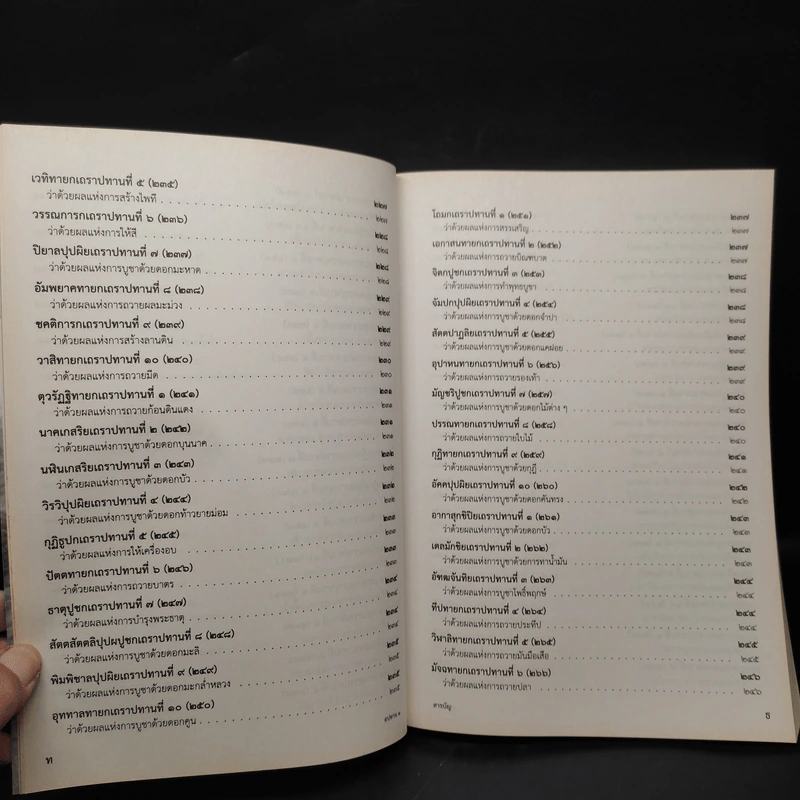 เวทิทายกเถราปทานที่ ๕ (๒๓๕)
ว่าด้วยผลแห่งการสร้างไพที ๒๒๗
วรรณการกเถราปทานที่ ๖ (๒๓๖) ๒๒๗
ว่าด้วยผลแห่งการให้สี ๒๒๘
ปิยาลปุปผิยเถราปทานที่ ๗ (๒๓๗) ๒๒๘
ว่าด้วยผลแห่งการบูชาด้วยดอกมะหาด ๒๒๘
อัมพยาคทายกเถราปทานที่ ๘ (๒๓๘) ๒๒๘
ว่าด้วยผลแห่งการถวายผลมะม่วง ๒๒๙
ชคติการกเถราปทานที่ ๙ (๒๓๙) ๒๒๙
ว่าด้วยผลแห่งการสร้างลานดิน ๒๒๙
วาสิทายกเถราปทานที่ ๑๐ (๒๔๐) ๒๓๐
ว่าด้วยผลแห่งการถวายมีด ๒๓๐
ตุวรัฏฐิทายกเถราปทานที่ ๑ (๒๔๑) ๒๓๑
ว่าด้วยผลแห่งการถวายก้อนดินแดง ๒๓๑
นาคเกสริยเถราปทานที่ ๒ (๒๔๒) ๒๓๑
ว่าด้วยผลแห่งการบูชาด้วยดอกบุนนาค ๒๓๑
นฬินเกสริยเถราปทานที่ ๓ (๒๔๓) ๒๓๒
ว่าด้วยผลแห่งการบูชาด้วยดอกบัว ๒๓๒
วิรวิปุปผิยเถราปทานที่ ๔ (๒๔๔) ๒๓๒
ว่าด้วยผลแห่งการบูชาด้วยดอกท้าวยายม่อม ๒๓๒
กุฏิธูปกเถราปทานที่ ๕ (๒๔๕) ๒๓๓
ว่าด้วยผลแห่งการให้เครื่องอบ ๒๓๓
ปัตตทายกเถราปทานที่ ๖ (๒๔๖) ๒๓๓
ว่าด้วยผลแห่งการถวายบาตร ๒๓๓
ธาตุปูชกเถราปทานที่ ๗ (๒๔๗) ๒๓๔
ว่าด้วยผลแห่งการบำรุงพระธาตุ ๒๓๔
สัตตสัตตลิปุปผปูชกเถราปทานที่ ๘ (๒๔๘) ๒๓๔
ว่าด้วยผลแห่งการบูชาด้วยดอกมะลิ ๒๓๔
พิมพิชาลปุปผิยเถราปทานที่ ๙ (๒๔๙) ๒๓๕
ว่าด้วยผลแห่งการบูชาด้วยดอกมะกล่ำหลวง ๒๓๕
อุททาลทายกเถราปทานที่ ๑๐ (๒๕๐) ๒๓๕
ว่าด้วยผลแห่งการบูชาด้วยดอกคูน ๒๓๕
ท
โถมกเถราปทานที่ ๑ (๒๕๑) ๒๓๗
ว่าด้วยผลแห่งการสรรเสริญ ๒๓๗
เอกาสนทายกเถราปทานที่ ๒ (๒๕๒) ๒๓๗
ว่าด้วยผลแห่งการถวายบิณฑบาต ๒๓๗
จิตกปูชกเถราปทานที่ ๓ (๒๕๓) ๒๓๘
ว่าด้วยผลแห่งการทำพุทธบูชา ๒๓๘
จัมปกปุปผิยเถราปทานที่ ๔ (๒๕๔) ๒๓๘
ว่าด้วยผลแห่งการบูชาด้วยดอกจำปา ๒๓๘
สัตตปาฏลิยเถราปทานที่ ๕ (๒๕๕) ๒๓๙
ว่าด้วยผลแห่งการบูชาด้วยดอกแคฝอย ๒๓๙
อุปาหนทายกเถราปทานที่ ๖ (๒๕๖) ๒๓๙
ว่าด้วยผลแห่งการถวายรองเท้า ๒๓๙
มัญชริปูชกเถราปทานที่ ๗ (๒๕๗) ๒๔๐
ว่าด้วยผลแห่งการบูชาด้วยดอกไม้ต่าง ๆ ๒๔๐
ปรรณทายกเถราปทานที่ ๘ (๒๕๘) ๒๔๐
ว่าด้วยผลแห่งการถวายใบไม้ ๒๔๐
กุฏิทายกเถราปทานที่ ๙ (๒๕๙) ๒๔๑
ว่าด้วยผลแห่งการบูชาด้วยกุฎี ๒๔๑
อัคคปุปผิยเถราปทานที่ ๑๐ (๒๖๐) ๒๔๒
ว่าด้วยผลแห่งการบูชาด้วยดอกคันทรง ๒๔๒
อากาสุกขิปิยเถราปทานที่ ๑ (๒๖๑) ๒๔๓
ว่าด้วยผลแห่งการบูชาด้วยดอกบัว ๒๔๓
เตลมักขิยเถราปทานที่ ๒ (๒๖๒) ๒๔๓
ว่าด้วยผลแห่งการบูชาด้วยการทาน้ำมัน ๒๔๓
อัฑฒจันทิยเถราปทานที่ ๓ (๒๖๓) ๒๔๔
ว่าด้วยผลแห่งการบูชาโพธิ์พฤกษ์ ๒๔๔
ทีปทายกเถราปทานที่ ๔ (๒๖๔) ๒๔๔
ว่าด้วยผลแห่งการถวายประทีป ๒๔๔
วิฬาลิทายกเถราปทานที่ ๕ (๒๖๕) ๒๔๕
ว่าด้วยผลแห่งการถวายมันมือเสือ ๒๔๕
มัจฉทายกเถราปทานที่ ๖ (๒๖๖) ๒๔๖
ว่าด้วยผลแห่งการถวายปลา ๒๔๖
สารบัญ ธ